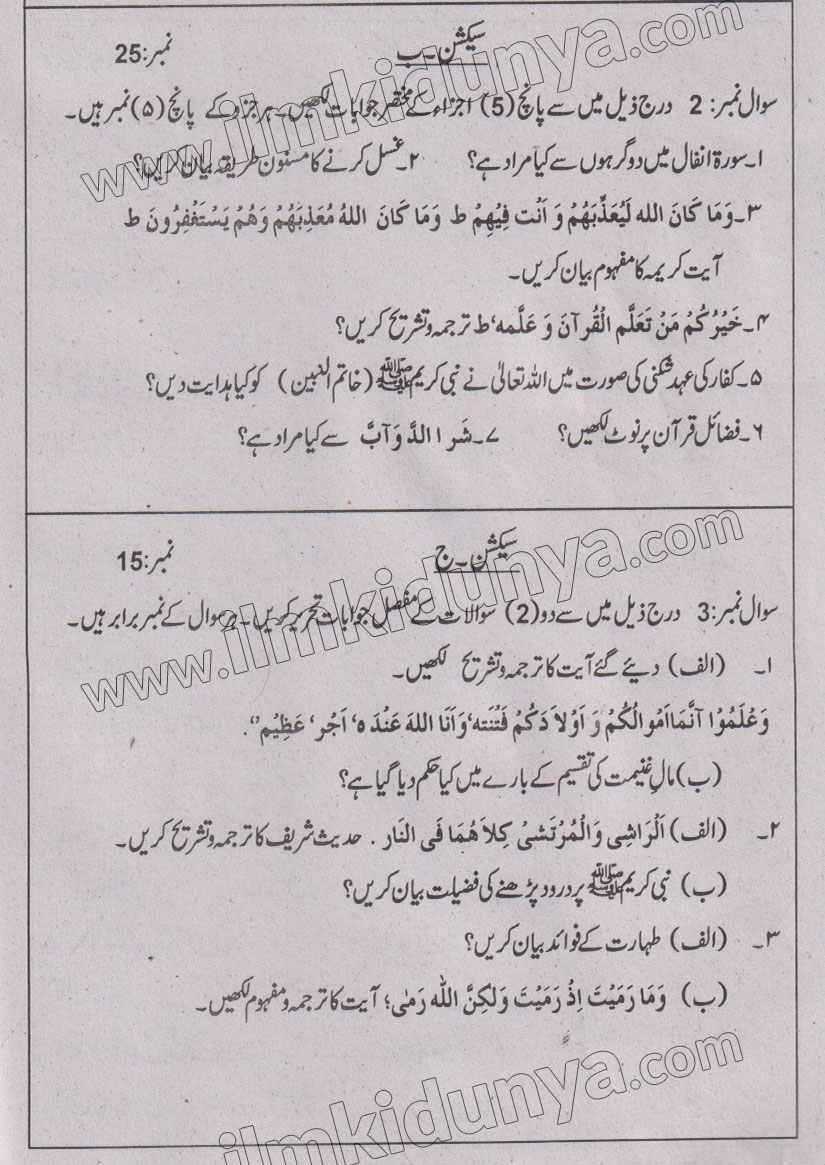 سیکشن۔ب
نمبر:25
سوال نمبر: 2 درج ذیل میں سے پانچ (5) اجزاء کے مختصر جوابات لکھیں۔ ہر جزو کے پانچ (۵) نمبر ہیں۔
۱۔ سورۃ انفال میں دو گرہوں سے کیا مراد ہے؟ ۲۔ غسل کرنے کا مسنون طریقہ بیان کریں؟
۳۔ وَمَا كَانَ الله لَيُعَذِّبَهُمْ وَ اَنْت فِيْهِمْ ط وَمَا كَانَ اللهُ مُعَذِبَهُمْ وَهُمْ يَسْتَغْفِرُونَ ط
آیت کریمہ کا مفہوم بیان کریں۔
۴۔ خَيْرُ كُمْ مَنْ تَعَلَّم الْقُرآنَ وَ عَلَّمه‘ ط ترجمہ و تشریح کریں؟
۵۔ کفار کی عہد شکنی کی صورت میں اللہ تعالیٰ نے نبی کریم ﷺ (خاتم النبین) کو کیا ہدایت دیں؟
۶۔ فضائل قرآن پر نوٹ لکھیں؟ ۷۔ شَر ا الدَّ وَ آبَّ سے کیا مراد ہے؟
سیکشن۔ج
نمبر:15
سوال نمبر: 3 درج ذیل میں سے دو (2) سوالات کے مفصل جوابات تحریر کریں۔ ہر سوال کے نمبر برابر ہیں۔
۱۔ (الف) دیئے گئے آیت کا ترجمہ و تشریح لکھیں۔
وَعْلَمُوْا آنَّمَا اَمْوالُكُمْ وَ اَوْلاَ دَكُمْ فَتْنَته‘ وَ اَنَا اللهَ عَنْدَ ه‘ اَجْر‘ عَظِيْم‘‘.
(ب) مالِ غنیمت کی تقسیم کے بارے میں کیا حکم دیا گیا ہے؟
۲۔ (الف) اَلْرَاشِی وَالْمُرْتَشیْ كِلاَ هُمَا فَی النَار . حدیث شریف کا ترجمہ و تشریح کریں۔
(ب) نبی کریم ﷺ پر درود پڑھنے کی فضیلت بیان کریں؟
۳۔ (الف) طہارت کے فوائد بیان کریں؟
(ب) وَمَا رَمَيْتَ اِذْ رَمَيْتَ وَلَكِنَّ اللّٰه رَمٰی؛ آیت کا ترجمہ و مفہوم لکھیں۔
www.ilmkidunya.com
www.ilmkidunya.com
ilmkidunya.com